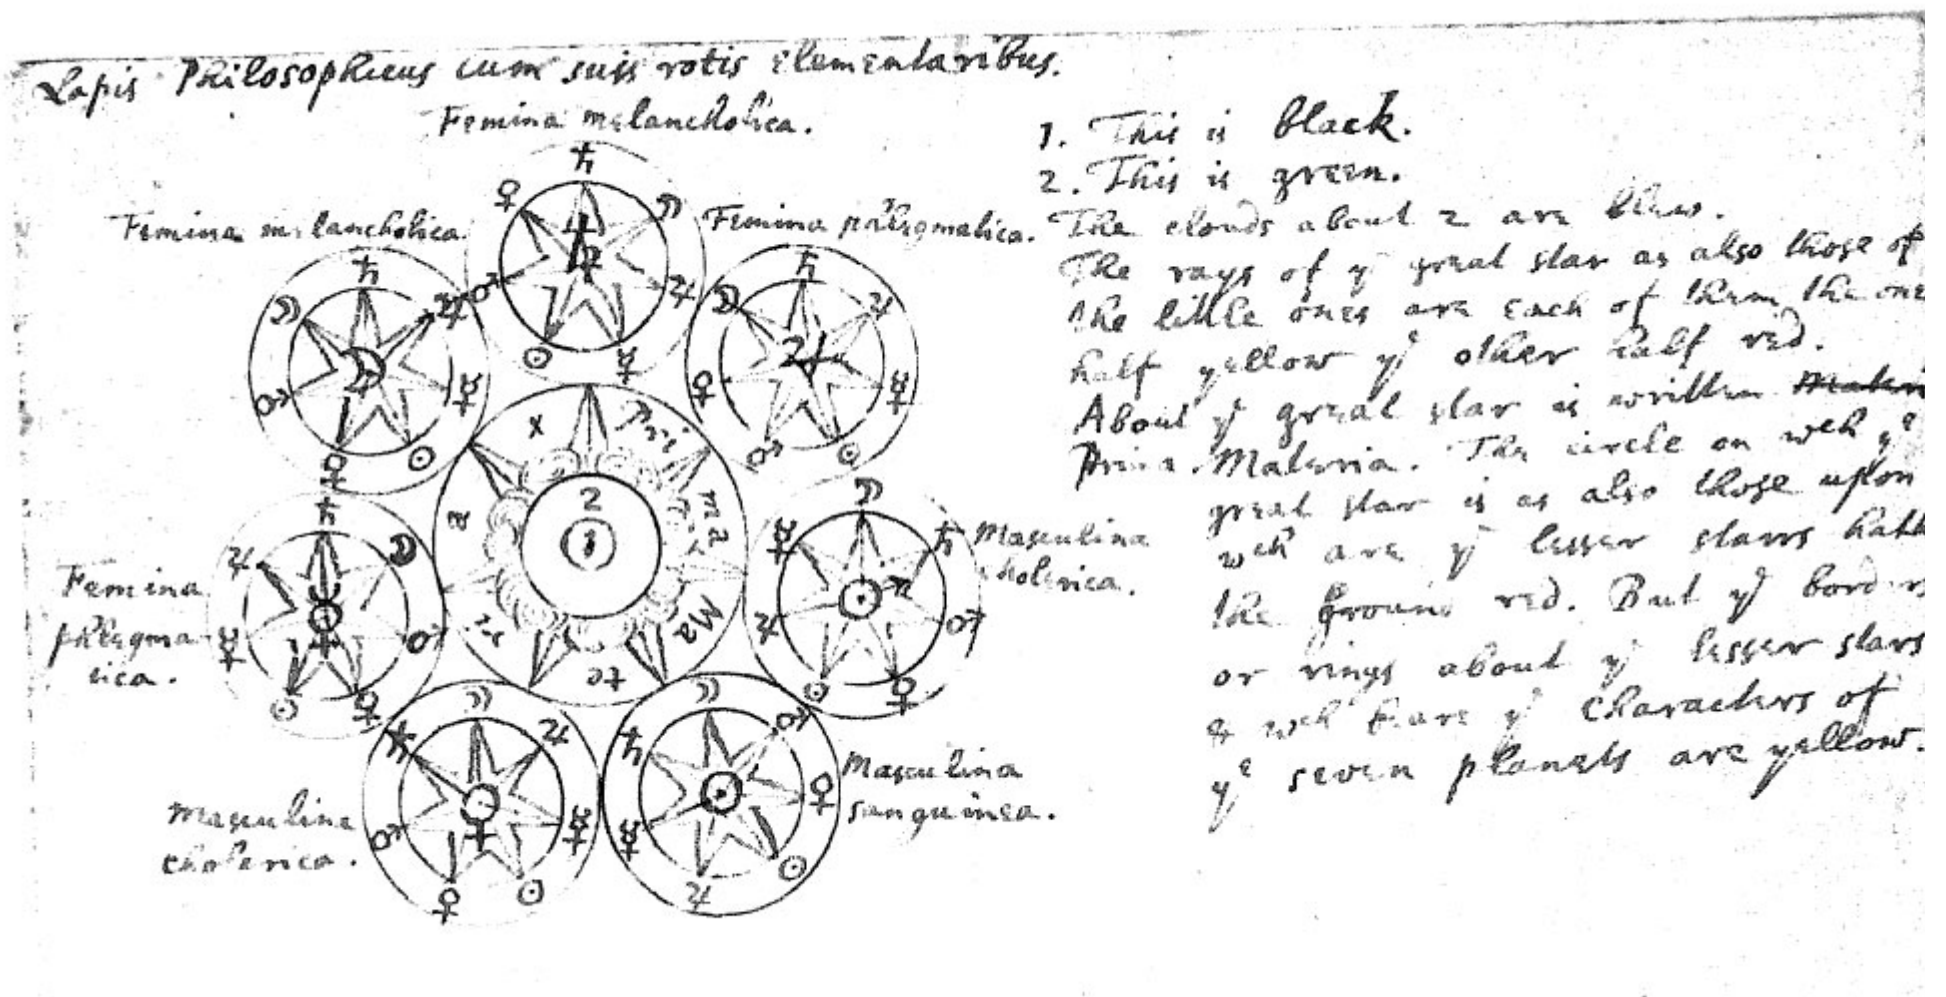 Lapis Philosophicus cum suis rotis elementaribus.
Femina melancholica.
Femina melancholica.
Femina phlegmatica.
Femina
phlegma
tica.
Masculina
cholerica.
Masculina
cholerica.
Masculina
sanguinea.
♄ ☽ ♃ ☿ ☉ ♂ ♀
♄ ♃ ☿ ☉ ♀ ♂ ☽
☽
♄ ♃ ☿ ☉ ♂ ♀ ☽
♃
♄ ☽ ♂ ♀ ☉ ☿ ♃
☽ ♄ ♂ ♀ ☉ ♃ ☿
☉
☽ ♃ ☿ ☉ ♀ ♂ ♄
♀
☽ ♂ ♀ ☉ ♃ ☿ ♄
☉
Pri
ma
Ma
te
ri
a
x
2
1
1. This is black.
2. This is green.
The clouds about 2 are blew.
The rays of yͤ great star as also those of
the little ones are each of them the one
half yellow yͤ other half red.
About yͤ great star is written
Prima Materia. The circle on wch yͤ
great star is as also those upon
wch are yͤ lesser starrs hath
the ground red. But yͤ borders
or rings about yͤ lesser stars
& wch beare yͤ characters of
yͤ seven planets are yellow.